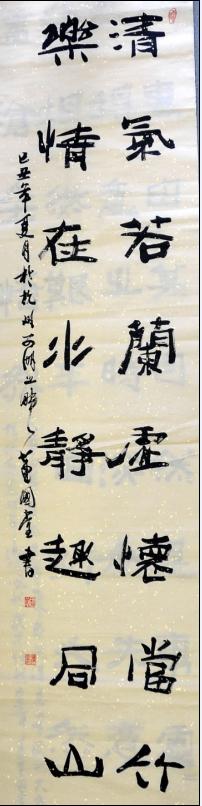 清氣若蘭虛懷當竹
樂情在水靜趣同山
己丑年夏月於杭州西湖之畔 書